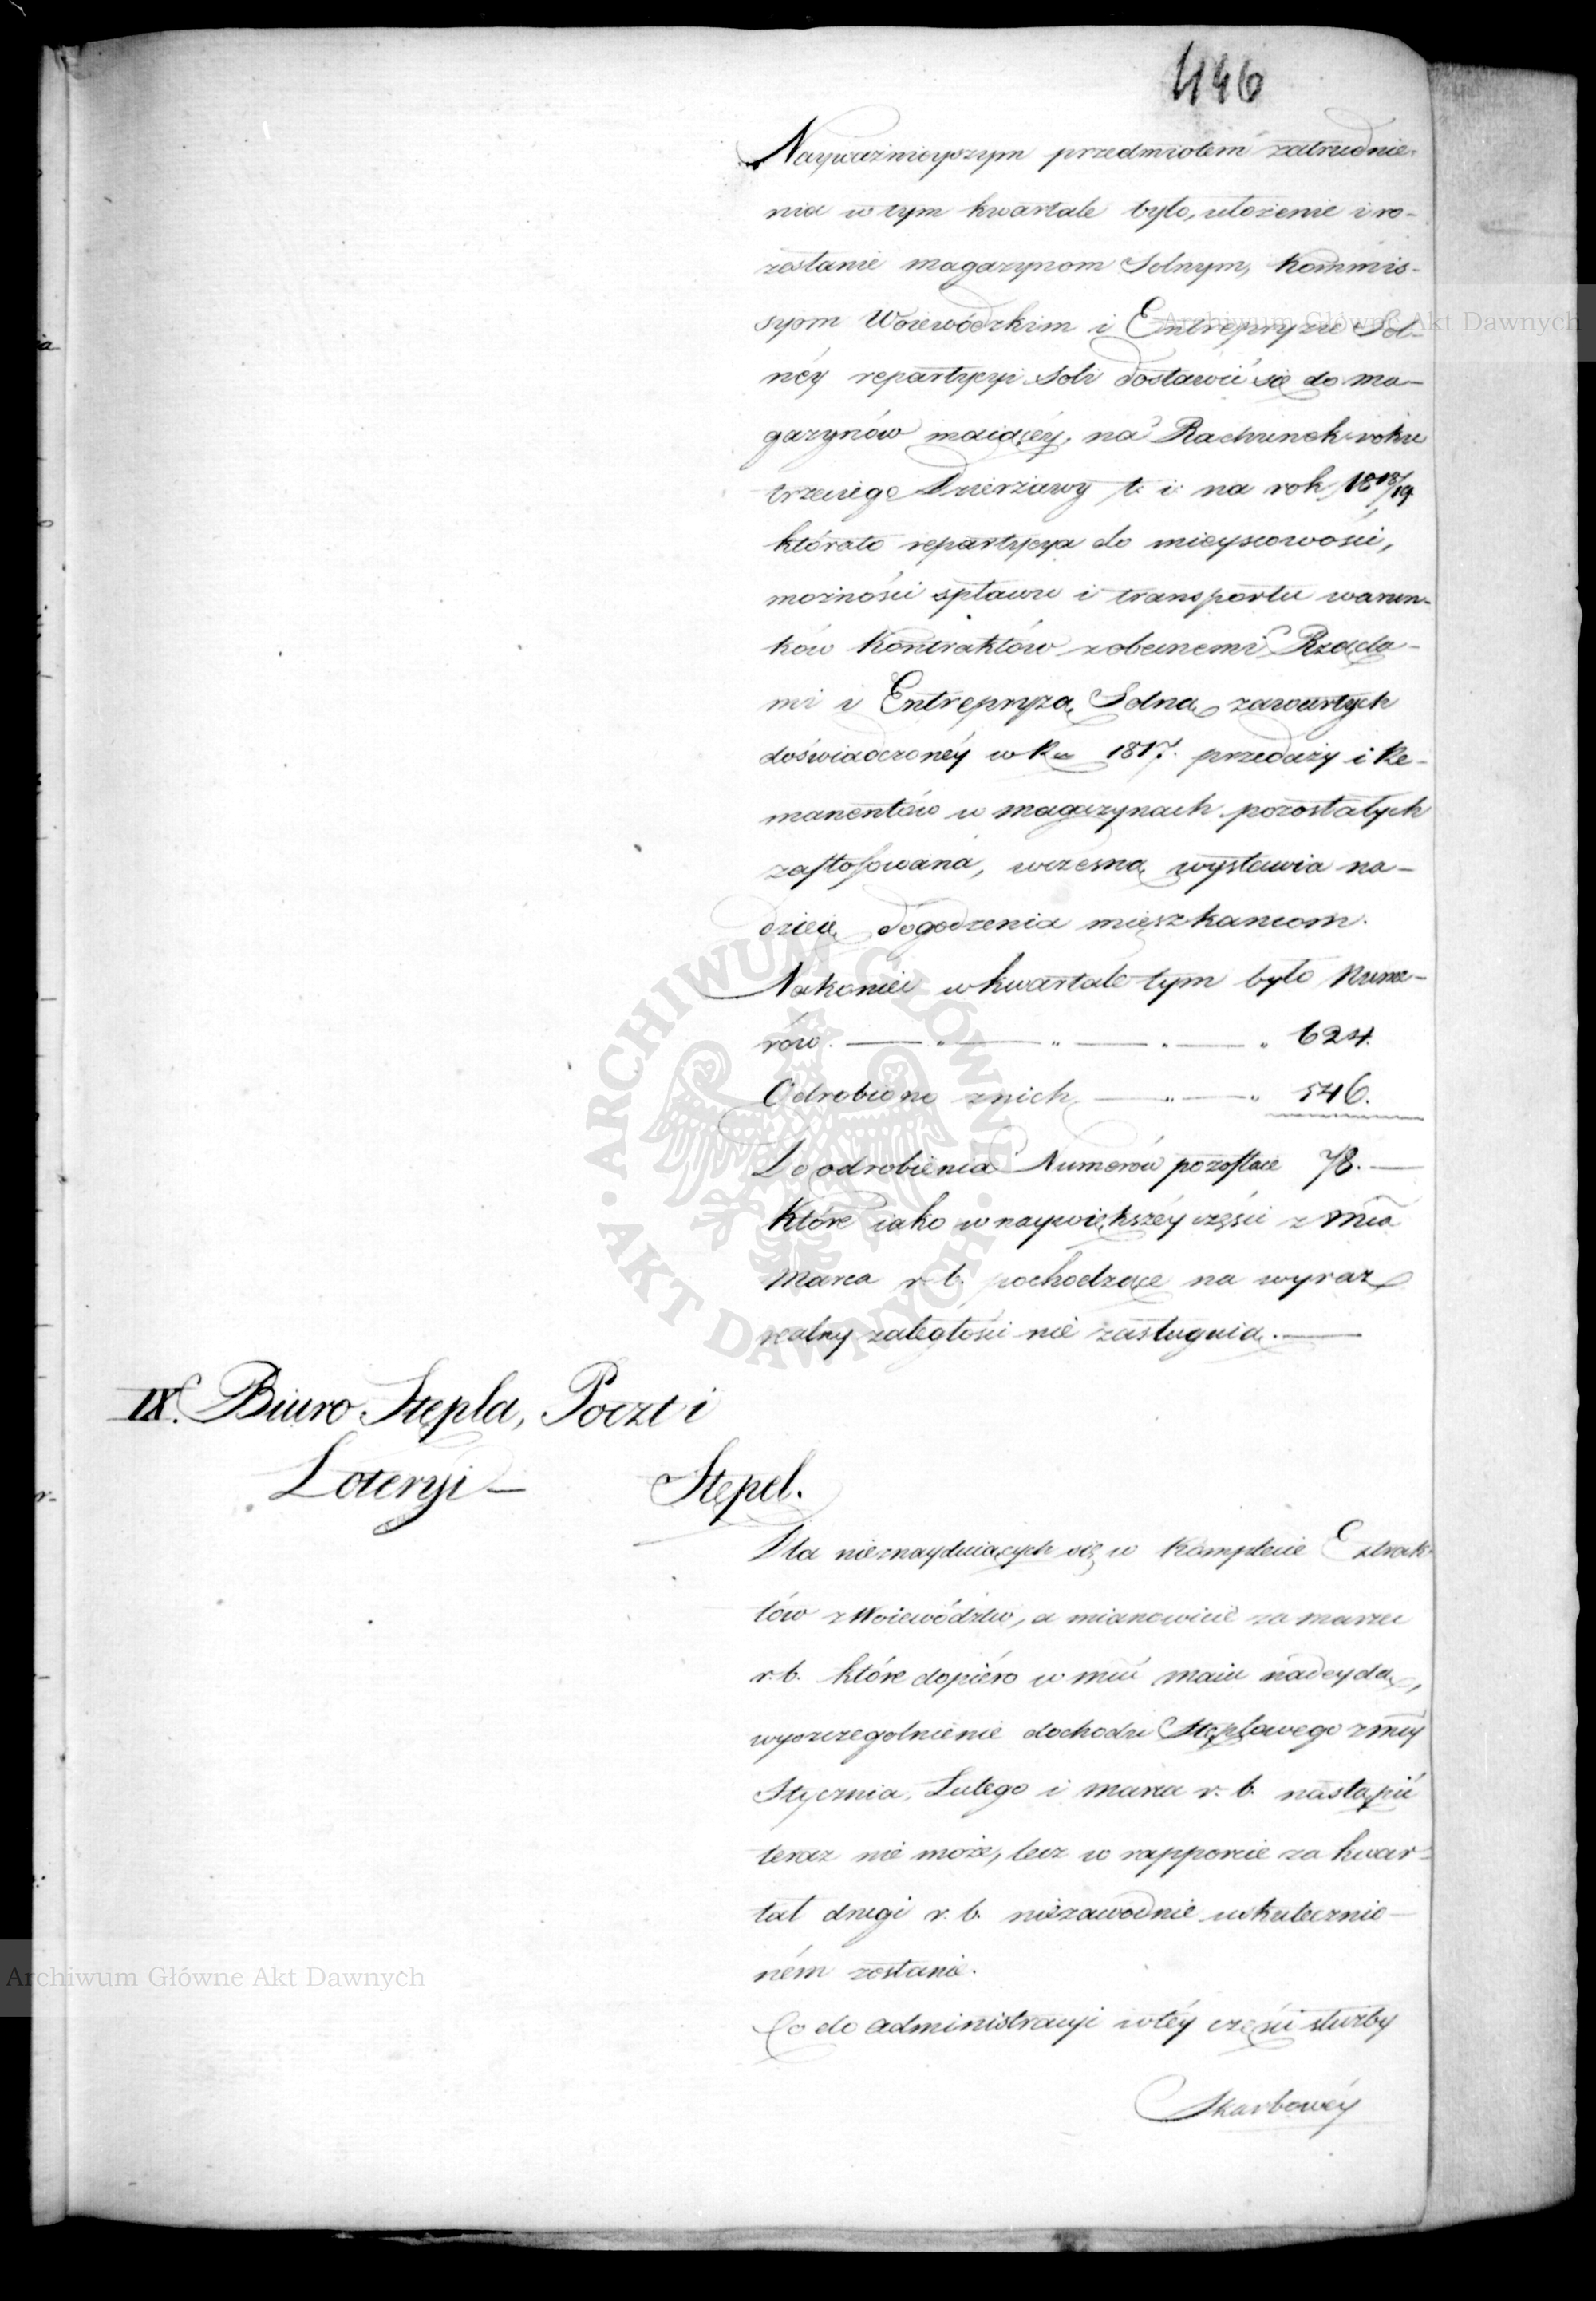 446
Nayważnieyszym przedmiotem zatrudnie-
nia w tym kwartale było, ułożenie i ro-
zesłanie magazynom Solnym, Kommis-
syom Woiewódzkim i Entrepryzie Sol-
néy repartycyi Soli dostawić się do ma-
gazynów maiącéy, na Rachunek roku
trzeciego Dzierżawy t. i. na rok 1818/19
którato repartycya do mieyscowości,
możności spławu i transportu warun-
ków Kontraktów z obcemi Rząda-
mi i Entrepryzą Solną zawartych
doświadczonéy w Ru 1817. przedaży i Re-
manentów w magazynach pozostałych
zastosowana, wczesną wystawia na-
dzieię dogodzenia mieszkańcom.
Nakoniec w kwartale tym było Nume-
rów. — " — " — " — " 624.
Odrobiono z nich — " — " 546.
Do odrobienia Numerów pozostaie 78. —
Które iako w naywiększéy części z mca
Marca r. b. pochodzące na wyraz
realny zaległości nie zasługuią. —
IX. Biuro Stępla, Poczt i
Loteryi —
Stępel.
Dla nieznayduiących się w Komplecie Extrak-
tów z Woiewództw, a mianowicie za marzec
r. b. które dopiéro w mcu maiu nadeydą,
wyszczególnienie dochodu Stęplowego z mcy
Stycznia, Lutego i marca r. b. nastąpić
teraz nie może, lecz w rapporcie za kwar-
tał drugi r. b. niezawodnie uskutecznio-
ném zostanie.
Co do administracyi w téy części służby
Skarbowéy
Archiwum Główne Akt Dawnych
Archiwum Główne Akt Dawnych
ARCHIWUM GŁÓWNE AKT DAWNYCH